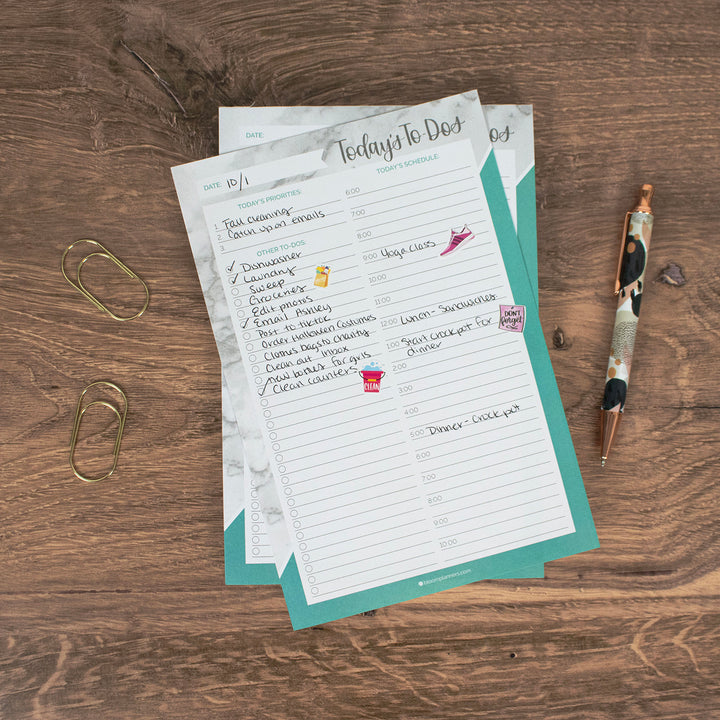 DATE:
Today's To-Dos
DATE: 10/1
TODAY'S PRIORITIES:
1 Fall cleaning
2 Catch up on emails
3
OTHER TO-DOS:
✓ Dishwasher
✓ Laundry
Sweep
Groceries
Edit photos
✓ Email Ashley
Post to tiktok
Order Halloween Costumes
Clothes bags to charity
Clean out inbox
new books for girls
✓ Clean counters
CLEAN
TODAY'S SCHEDULE:
6:00
7:00
8:00
9:00 Yoga Class
10:00
11:00
12:00 Lunch - Sandwiches
1:00 Start crockpot for
dinner
DON'T
forget
2:00
3:00
4:00
5:00 Dinner - Crockpot
6:00
7:00
8:00
9:00
10:00
bloomplanners.com
os